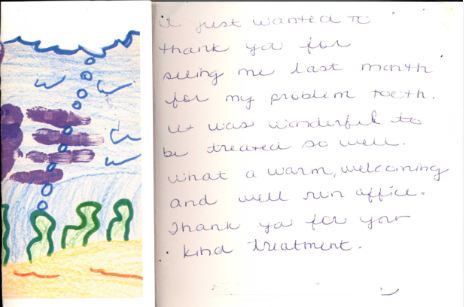 I just wanted to
thank ya for
seeing me last month
for my problem tooth.
It was wonderful to
be treated so well.
What a warm, welcoming
and well run office.
Thank ya for your
kind treatment.